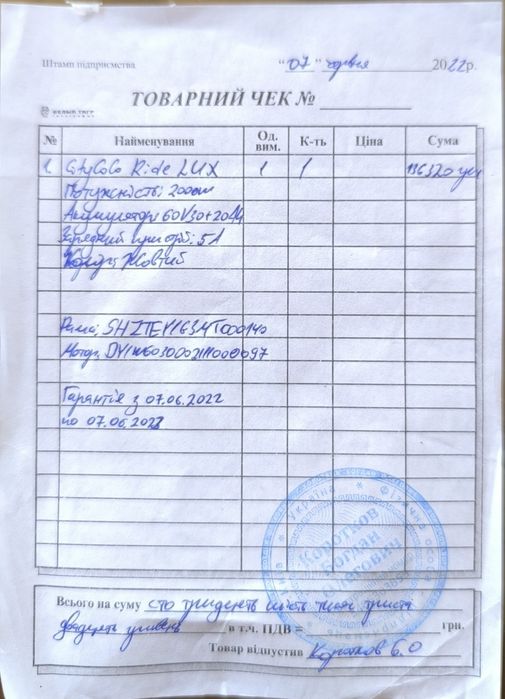 Штамп підприємства "07" червня 2022р.
ТОВАРНИЙ ЧЕК №
№ Найменування Од. вим. К-ть Ціна Сума
1. CityCoCo Ride LUX 1 1 136320 грн
Потужність: 2000w
Акумулятор: 60V30+20Ah
Зарядний пристрій: 5A
Колір: Жовтий
Рама:
Мотор:
Гарантія з 07.06.2022
по 07.06.2023
Всього на суму сто тридцять шість тисяч триста
двадцять гривень в т.ч. ПДВ = грн.
Товар відпустив Коротков Б.О
Україна * Фізична особа
Коротков
Богдан
Олегович